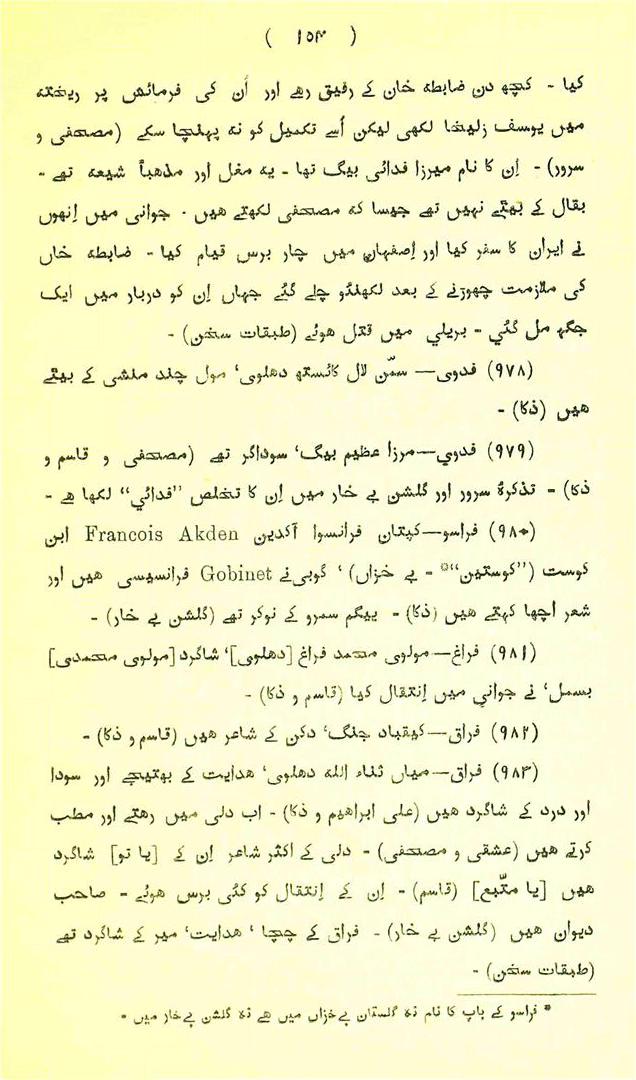 ( ۱۵۳ )
کیا - کچھ دن ضابطہ خان کے رفیق رہے اور اُن کی فرمائش پر ریختہ
میں یوسف زلیخا لکھی لیکن اُسے تکمیل کو نہ پہنچا سکے (مصحفی و
سرور) - اِن کا نام میرزا فدائی بیگ تھا - یہ مغل اور مذہباً شیعہ تھے -
بقال کے بیٹے نہیں تھے جیسا کہ مصحفی لکھتے ہیں - جوانی میں اِنہوں
نے ایران کا سفر کیا اور اِصفہان میں چار برس قیام کیا - ضابطہ خاں
کی ملازمت چھوڑنے کے بعد لکھنؤ چلے گئے جہاں اِن کو دربار میں ایک
جگہ مل گئی - بریلی میں قتل ہوئے (طبقات سخن) -
(۹۷۸) فدوی— سمّن لال کائستھ دہلوی، مول چند منشی کے بیٹے
ہیں (ذکا) -
(۹۷۹) فدوی—مرزا عظیم بیگ، سوداگر تھے (مصحفی و قاسم و
ذکا) - تذکرۂ سرور اور گلشن بے خار میں اِن کا تخلص ”فدائی“ لکھا ہے -
(۹۸۰) فراسو—کپتان فرانسوا آکدین Francois Akden ابن
کوست (”کوستین“* - بے خزاں) ، گوبی نے Gobinet فرانسیسی ہیں اور
شعر اچھا کہتے ہیں (ذکا) - بیگم سمرو کے نوکر تھے (گلشن بے خار) -
(۹۸۱) فراغ—مولوی محمد فراغ [دہلوی]، شاگرد [مولوی محمدی]
بسمل، نے جوانی میں اِنتقال کیا (قاسم و ذکا) -
(۹۸۲) فراق—کیقباد جنگ، دکن کے شاعر ہیں (قاسم و ذکا) -
(۹۸۳) فراق—میاں ثناء اللہ دہلوی، ہدایت کے بھتیجے اور سودا
اور درد کے شاگرد ہیں (علی ابراہیم و ذکا) - اب دلی میں رہتے اور مطب
کرتے ہیں (عشقی و مصحفی) - دلی کے اکثر شاعر اِن کے [یا تو] شاگرد
ہیں [یا متّبع] (قاسم) - اِن کے اِنتقال کو کئی برس ہوئے - صاحب
دیوان ہیں (گلشن بے خار) - فراق کے چچا ، ہدایت، میر کے شاگرد تھے
(طبقات سخن) -
* فراسو کے باپ کا نام نہ گلستان بے خزاں میں ہے نہ گلشن بے خار میں -